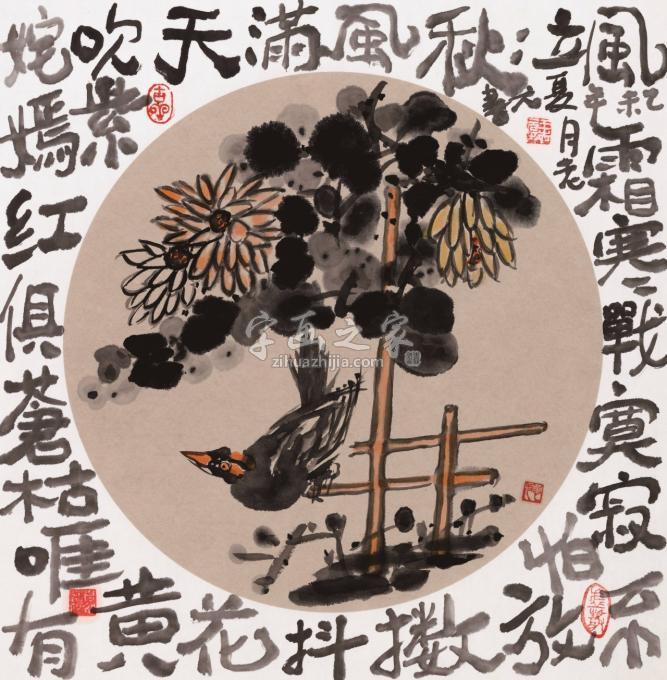 颯〻秋風滿天吹
姹紫嫣红俱蒼枯
唯有黄花抖擞放
不怕寂寞戰寒霜
乙未年
夏月老
書
字画之家
zihuazhijia.com